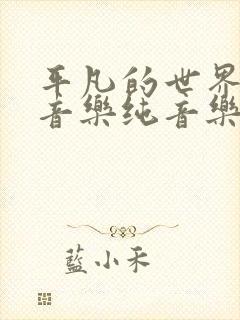 平凡的世界
音樂纯音樂
藍小禾